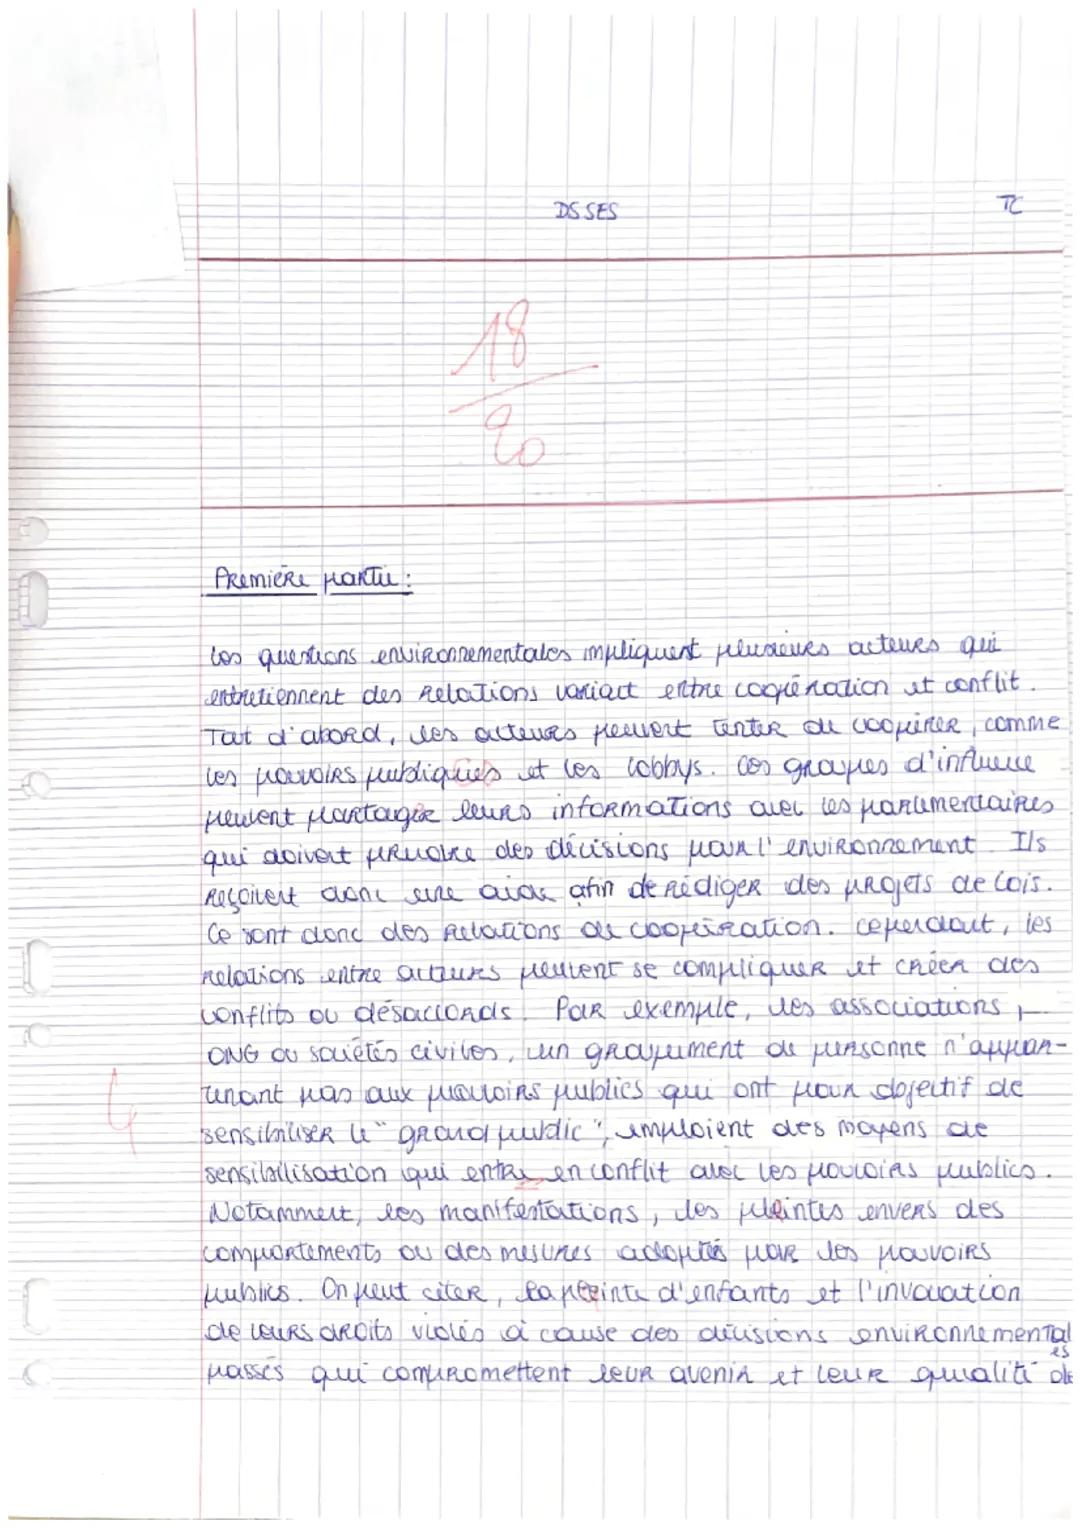 DS SES
TC
18
20
Première partie :
Les questions environnementales impliquent plusieurs acteurs qui
entretiennent des relations variant entre coopération et conflit.
Tout d'abord, les acteurs peuvent tenter de coopérer, comme
les pouvoirs publiques et les lobbys. Ces groupes d'influence
peuvent partager leurs informations avec les parlementaires
qui doivent prendre des décisions pour l'environnement. Ils
reçoivent donc une aide afin de rédiger des projets de lois.
Ce sont donc des relations de coopération. Cependant, les
relations entre acteurs peuvent se compliquer et créer des
conflits ou désaccords. Par exemple, les associations,
ONG ou sociétés civiles, un groupement de personne n'appar-
4
tenant pas aux pouvoirs publics qui ont pour objectif de
sensibiliser le "grand public", emploient des moyens de
sensibilisation qui entre en conflit avec les pouvoirs publics.
Notamment, les manifestations, des plaintes envers des
comportements ou des mesures adoptés par les pouvoirs
publics. On peut citer, la plainte d'enfants et l'invocation
de leurs droits violés à cause des décisions environnemental
es
passés qui compromettent leur avenir et leur qualité de